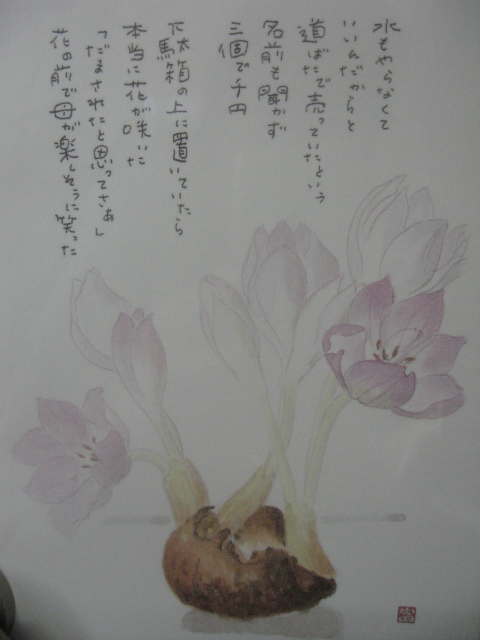 水もやらなくて
いいんだからと
道ばたで売っていたという
名前も聞かず
三個で千円
下駄箱の上に置いていたら
本当に花が咲いた
「だまされたと思ってさぁ」
花の前で母が楽しそうに笑った
富